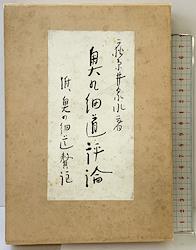 荻原井泉水著
奥の細道評論
附、奥の細道贅註